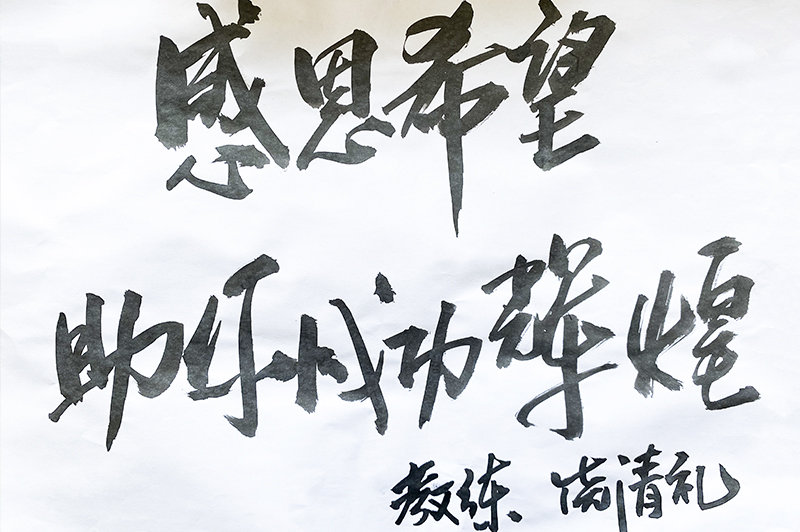 感恩希望
助仔成功辉煌
教练、饶清礼